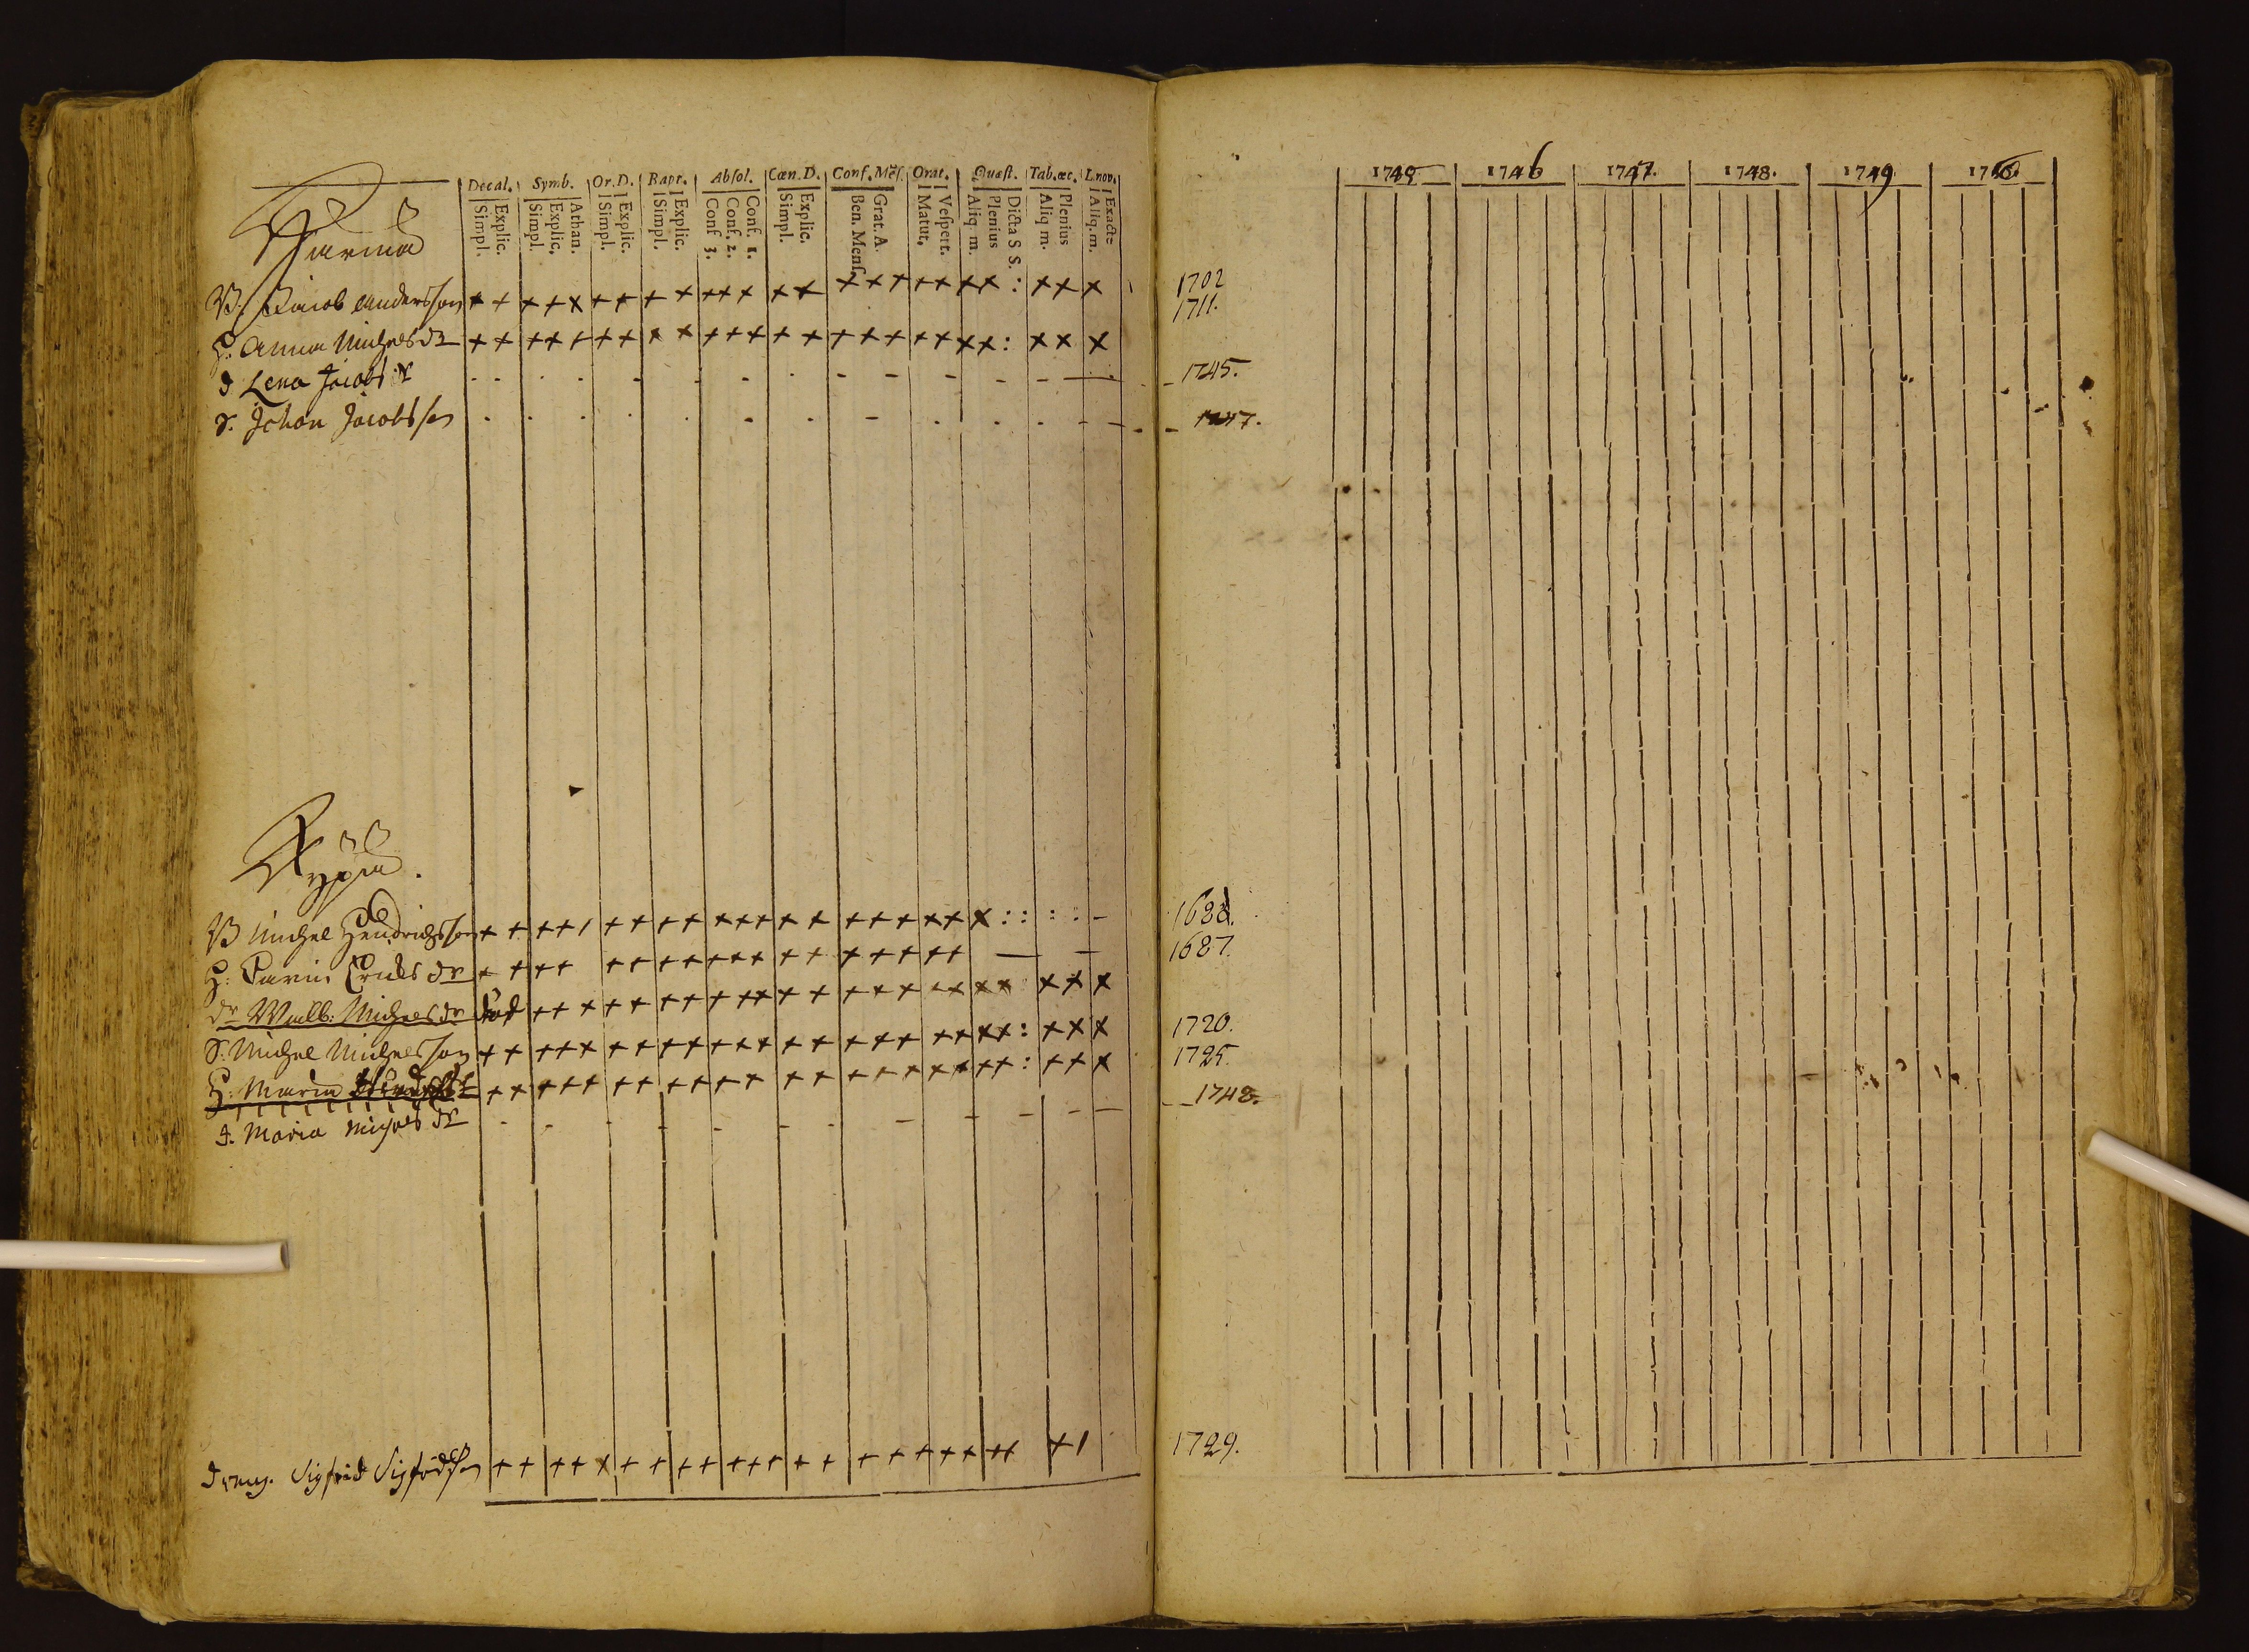 Decal. Symb. Or. D. Bapt. Absol. Cœn. D. Conf. Mẽs. Orat. Quæst. Tab. œc. L. nov.
Simpl. Explic. Simpl. Explic. Athan. Simpl. Explic. Simpl. Explic. Conf. 3. Conf. 2. Conf. 1. Simpl. Explic. Ben. Mens. Grat. A. Matut. Vespert. Aliq. m. Plenius Dicta S S. Aliq. m. Plenius Aliq. m. Exacte
Jacob Andersson
H: Anna Michels dr
d Lena Jacobs dr
S. Johan Jacobsson
Michel Hendrichsson
H: Carin Ericks dr
dr Walb: Michels dr död
S: Michel Michelsson
H: Maria
d. Maria Michels dr
dreng. Sigfrid Sigfridsson
1745 1746 1747. 1748. 1749
1702
1711.
1745.
1747.
1688.
1687.
1720.
1725.
1748.
1729.